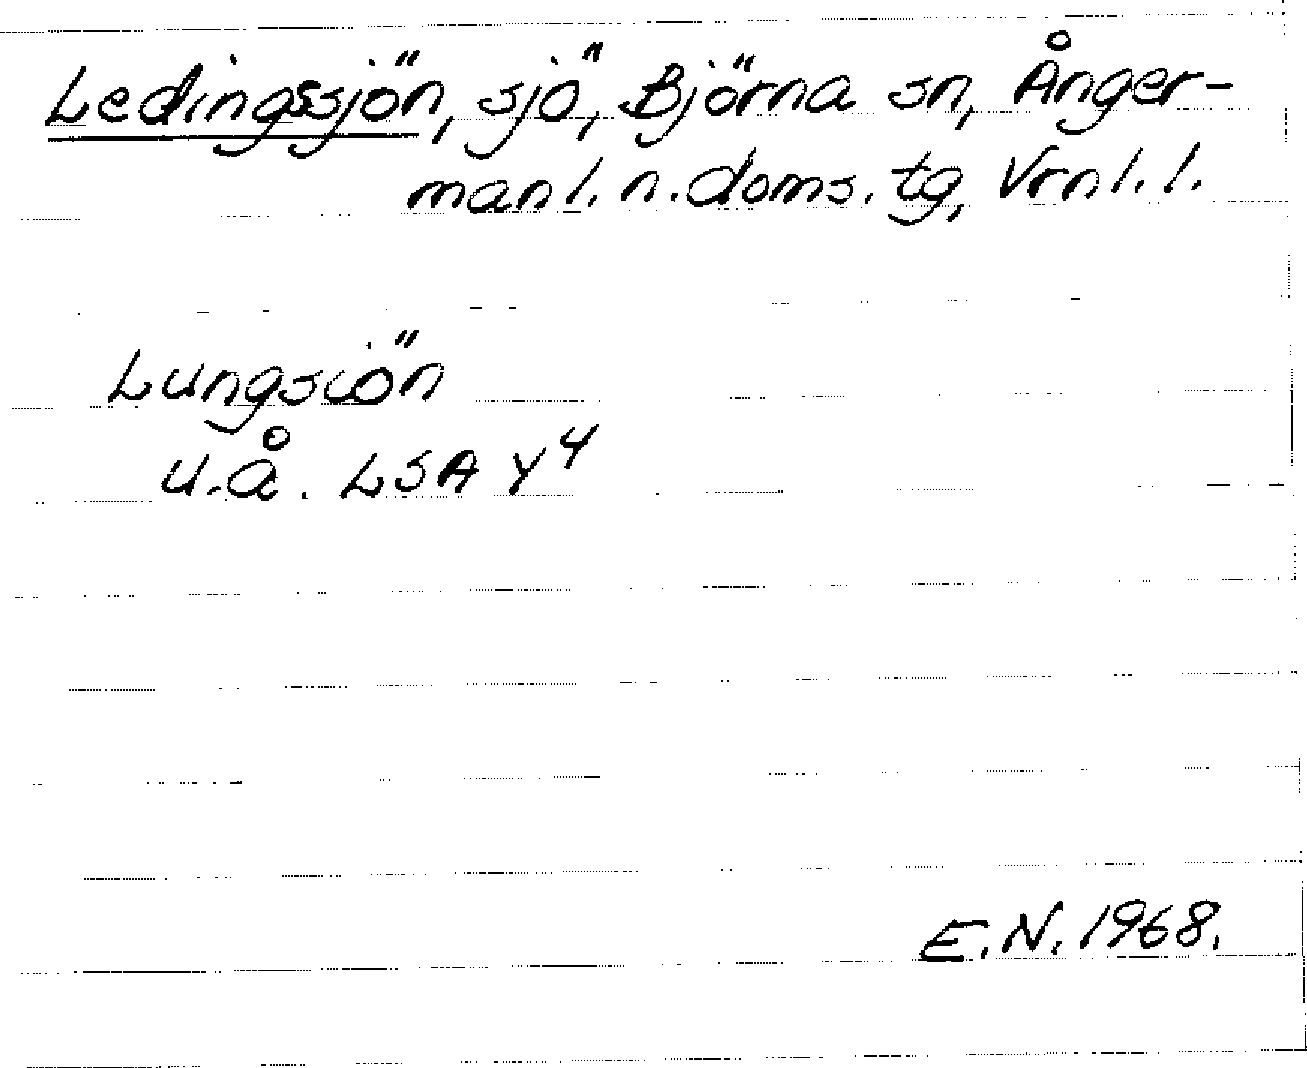 Ledingssjön, sjö, Björna sn, Ånger-
manl. n. doms. tg, Vrnl. l.
Lungsiön
u.å. LSA Y4
E.N. 1968.